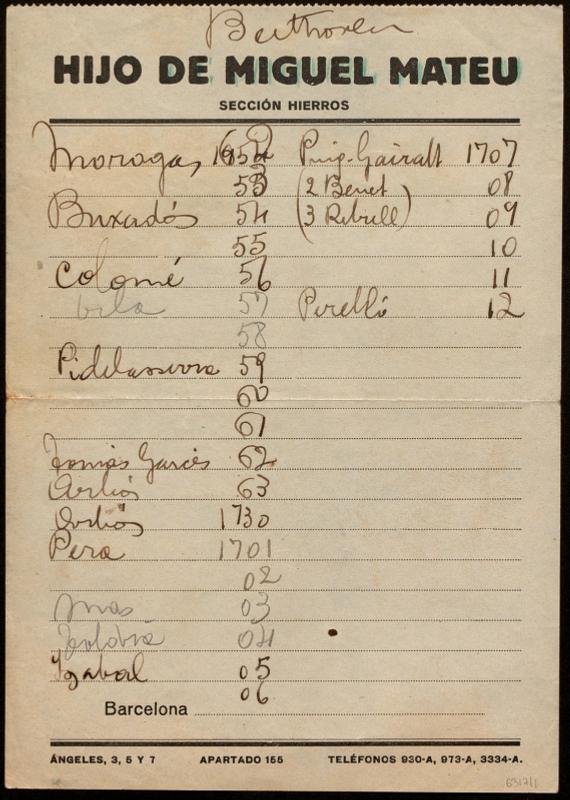 Beethoven
HIJO DE MIGUEL MATEU
SECCIÓN HIERROS
Moragas
53
Buxadós 54
55
Colomé 56
57
58
Pidelaserra 59
60
61
Tomás Garcés 62
63
1730
Pera 1701
02
Mas 03
04
05
06
Puig-Gairalt 1707
(2 Benet 08
(3 Rebull) 09
10
11
Perelló 12
Barcelona
ÁNGELES, 3, 5 Y 7 APARTADO 155 TELÉFONOS 930-A, 973-A, 3334-A.
6317/1